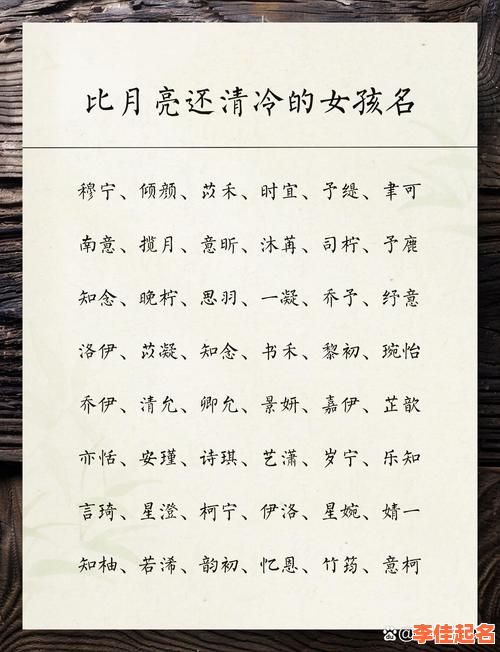 比月亮还清冷的女孩名
穆宁、倾颜、苡禾、时宜、予缇、聿可
南意、揽月、意昕、沐苒、司柠、予鹿
知念、晚柠、思羽、一凝、乔予、纾意
洛伊、苡凝、知念、书禾、黎初、琬怡
乔伊、清允、卿允、景妍、嘉伊、芷歆
亦恬、安瑾、诗琪、艺潇、岁宁、乐知
言琦、星澄、柯宁、伊洛、星婉、婧一
知柚、若浠、韵初、忆恩、竹筠、意柯
@李佳起名